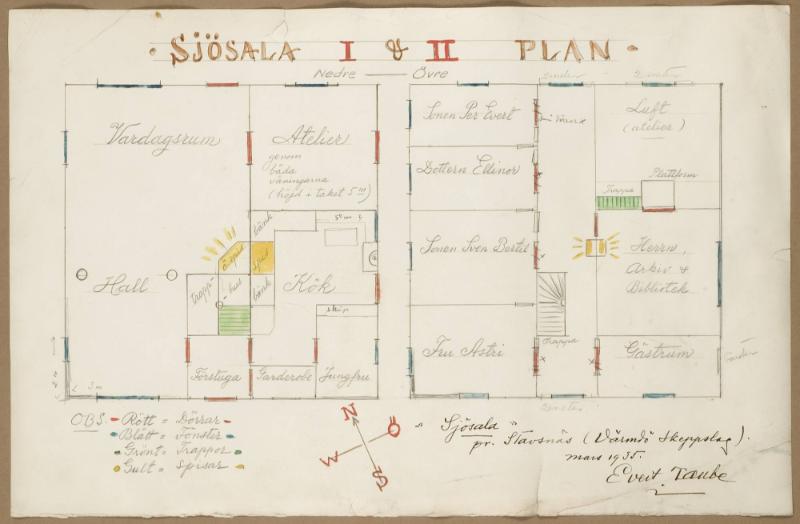 · SJÖSALA I & II PLAN ·
Nedre — Övre
Vardagsrum
Atelier
genom
båda
våningarna
(höjd i taket 5 m)
Hall
trapp-
hus
ö.spis
spis
bänk
bänk
Kök
skåp
Förstuga
Garderobe
Jungfru
2 m
Sonen Per Evert
Dottern Ellinor
Sonen Sven Bertil
Fru Astri
Trappa
Luft
(atelier)
Plattform
Trappa
Herrn,
Arkiv &
Bibliotek
Gästrum
fönster
fönster
fönster
OBS. - Rött = Dörrar -
Blått = Fönster
Grönt = Trappor
Gult = Spisar
N
Ö
S
W
"Sjösala"
pr. Stavsnäs (Värmdö Skeppslag).
mars 1935.
Evert Taube